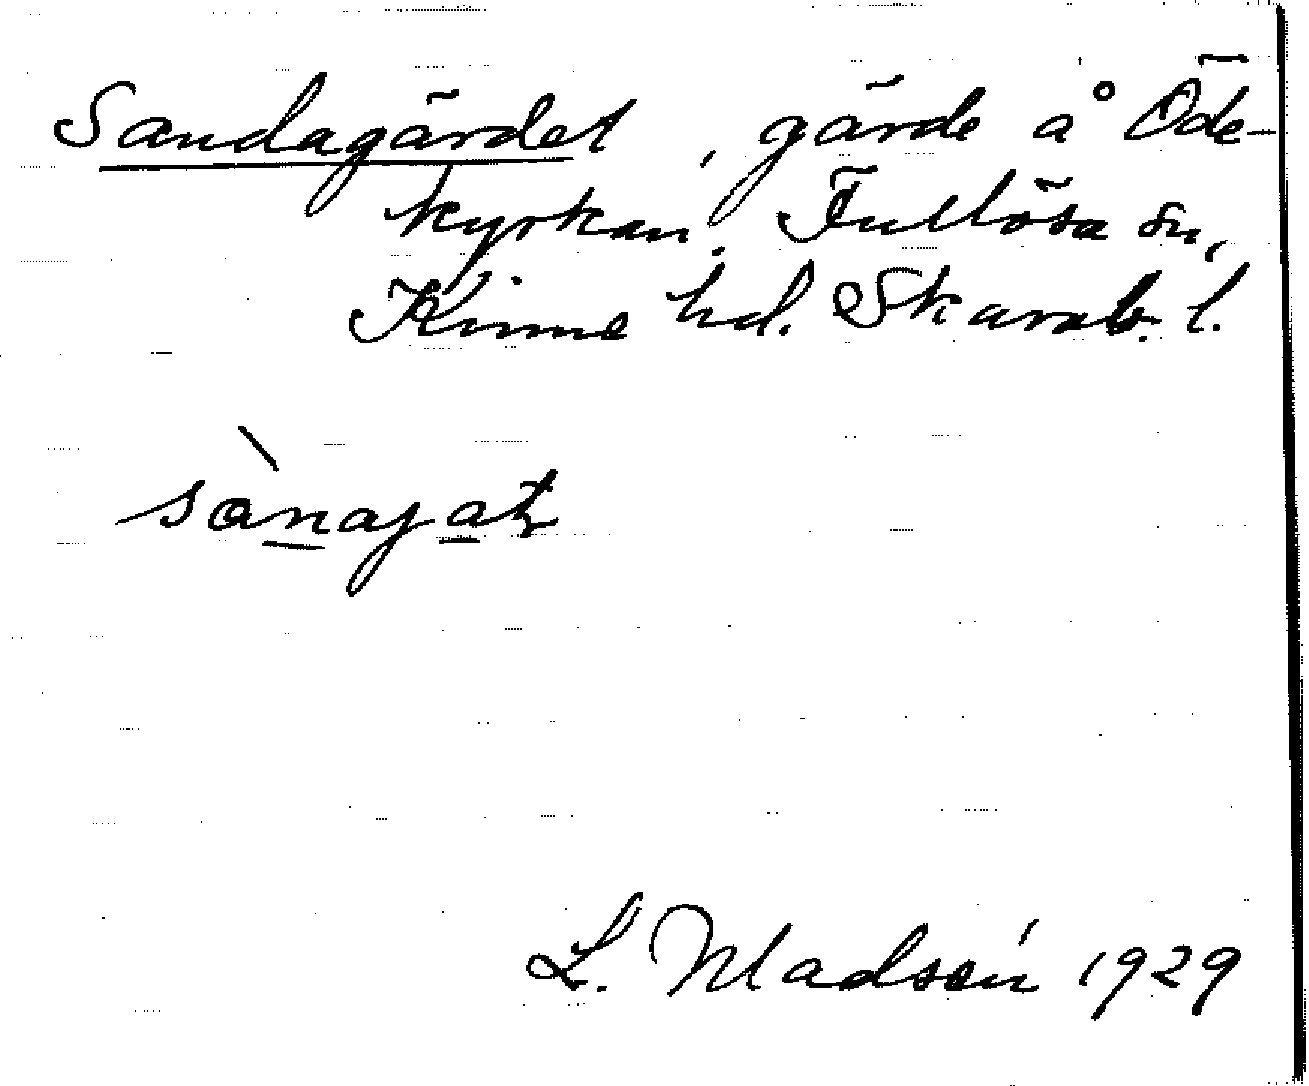 Sandagärdet, gärde å Öde-
kyrkan. Fullösa sn,
Kinne hd. Skarab. l.
sànajat
L. Madsén 1929